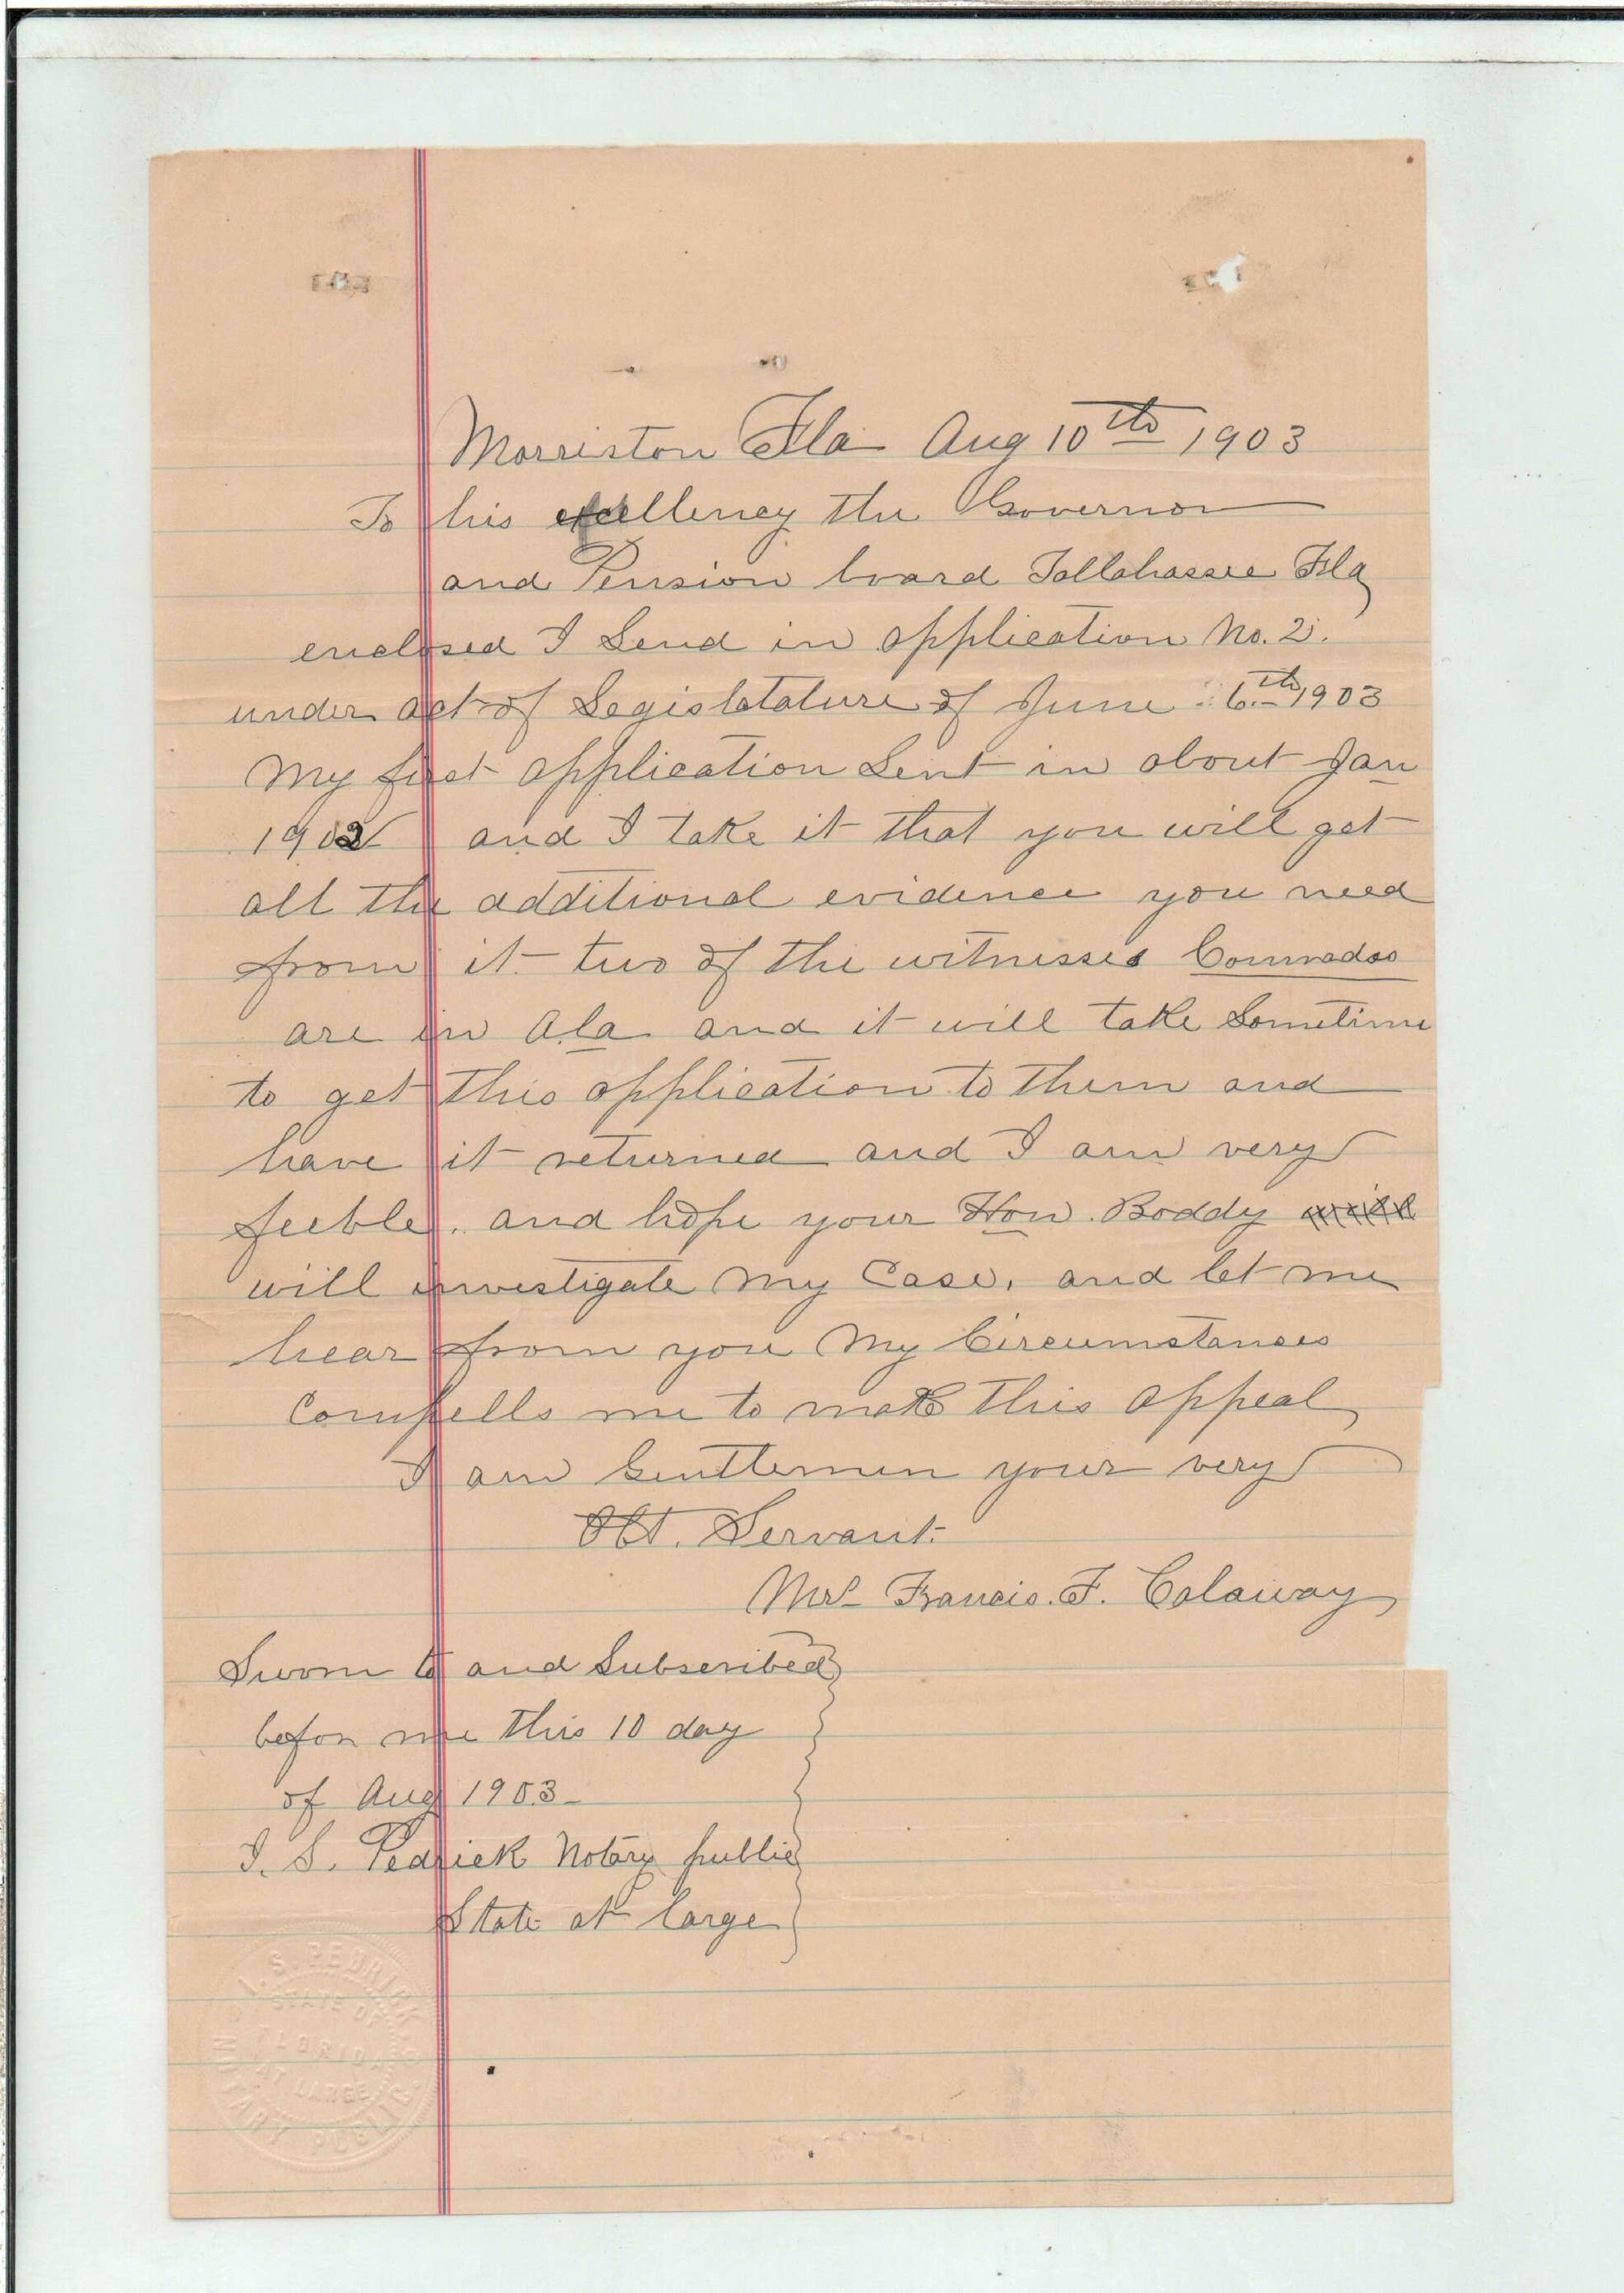 Morriston Fla Aug 10th 1903
To his excellency the Governor
and Pension board Tallahassee Fla
enclosed I Send in application No. 2.
under act of Legislatature of June 6th 1903
My first application Sent in about Jan
1902 and I take it that you will get
all the additional evidence you need
from it two of the witnesses Comrades
are in Ala and it will take Sometime
to get this application to them and
have it returned and I am very
feeble. and hope your Hon. Boddy will
will investigate my Case, and let me
hear from you My Circumstances
Compells me to make this appeal
I am Gentlemen your very
Obt. Servant.
Mrs Francis. F. Calaway
Sworn to and Subscribed
before me this 10 day
of Aug 1903
I. S. Pedrick Notary public
State at large
I. S. PEDRICK
STATE OF
FLORIDA
AT LARGE
NOTARY PUBLIC